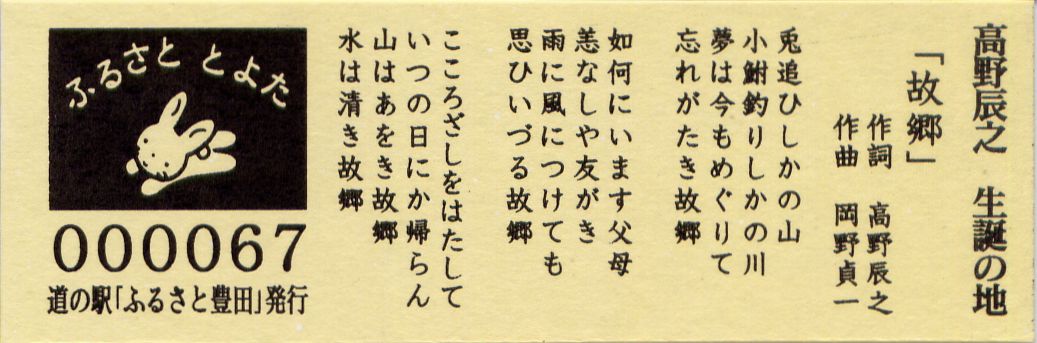 高野辰之　生誕の地
「故郷」
作詞　高野辰之
作曲　岡野貞一
兎追ひしかの山
小鮒釣りしかの川
夢は今もめぐりて
忘れがたき故郷
如何にいます父母
恙なしや友がき
雨に風につけても
思ひいづる故郷
こころざしをはたして
いつの日にか帰らん
山はあをき故郷
水は清き故郷
ふるさと とよた
000067
道の駅「ふるさと豊田」発行